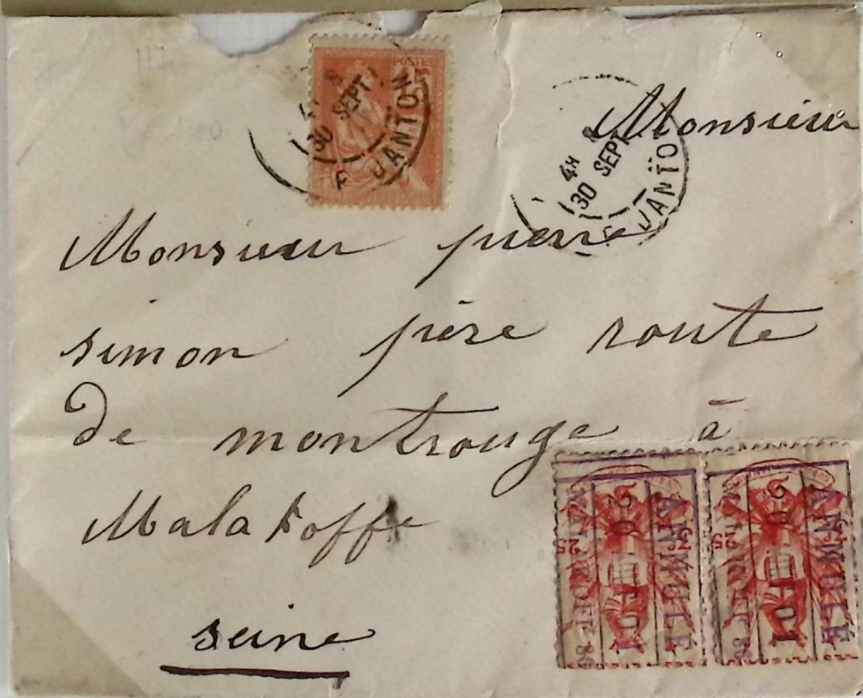 POSTES
15
4H
30 SEPT
JANTON
4H
30 SEPT
JANTO
Monsieur
Monsieur pierre
simon père route
de montrouge à
Malakoffe
seine
ANNULÉ
ANNULÉ